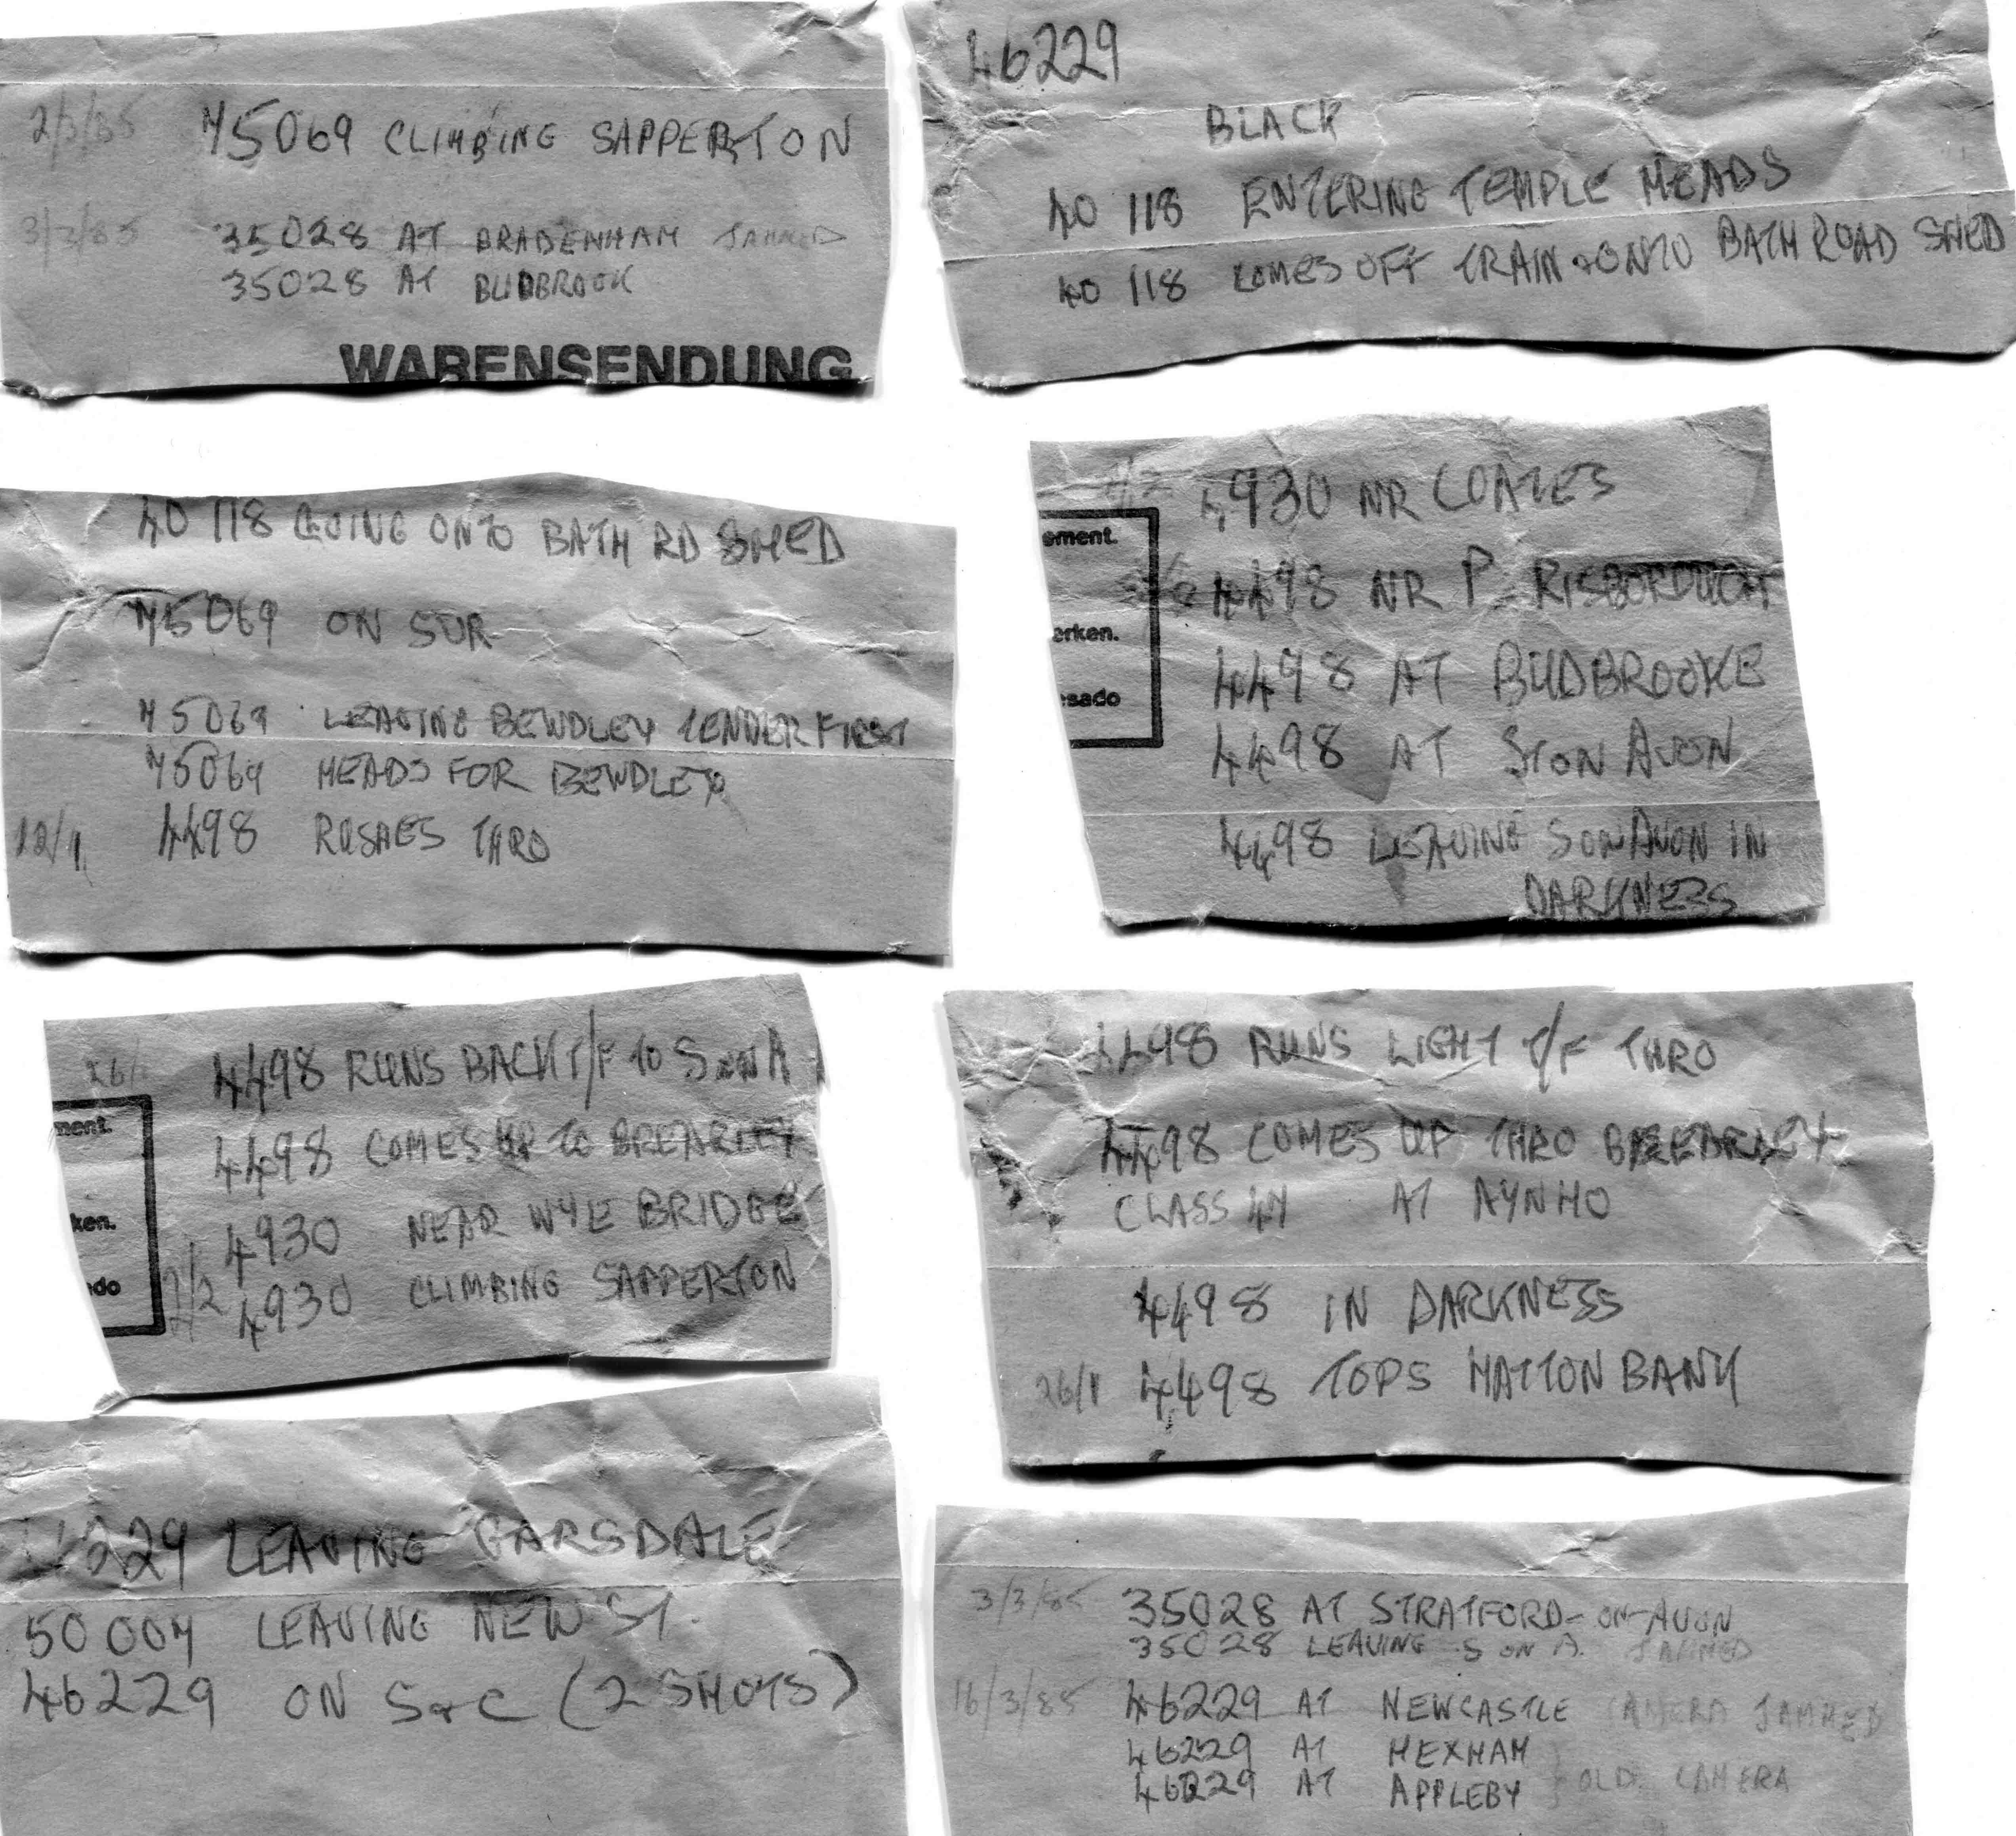 2/3/85 75069 CLIMBING SAPPERTON
3/3/85 35028 AT BRADENHAM JAMMED
35028 AT BUDBROOK
WARENSENDUNG
46229
BLACK
40 118 ENTERING TEMPLE MEADS
40 118 COMES OFF TRAIN & ONTO BATH ROAD SHED
40 118 GOING ONTO BATH RD SHED
75069 ON SVR
75069 LEAVING BEWDLEY TENDER FIRST
75069 HEADS FOR BEWDLEY
12/1 4498 RUSHES THRO
4930 NR COATES
ement.
4498 NR P. RISBOROUGH
erken.
4498 AT BUDBROOKE
sado
4498 AT S'ON AVON
4498 LEAVING S'ON AVON IN
DARKNESS
26/ 4498 RUNS BACK T/F TO S ON A
ment.
4498 COMES UP TO BREARLEY
ken.
4930 NEAR WYE BRIDGE
do
2/2 4930 CLIMBING SAPPERTON
4498 RUNS LIGHT T/F THRO
4498 COMES UP THRO
CLASS 47 AT AYNHO
4498 IN DARKNESS
26/1 4498 TOPS HATTON BANK
229 LEAVING GARSDALE
50 007 LEAVING NEW ST.
46229 ON S&C (2 SHOTS)
3/3/85 35028 AT STRATFORD-ON-AVON
35028 LEAVING S ON A. JAMMED
16/3/85 46229 AT NEWCASTLE CAMERA JAMMED
46229 AT HEXHAM
46229 AT APPLEBY } OLD CAMERA